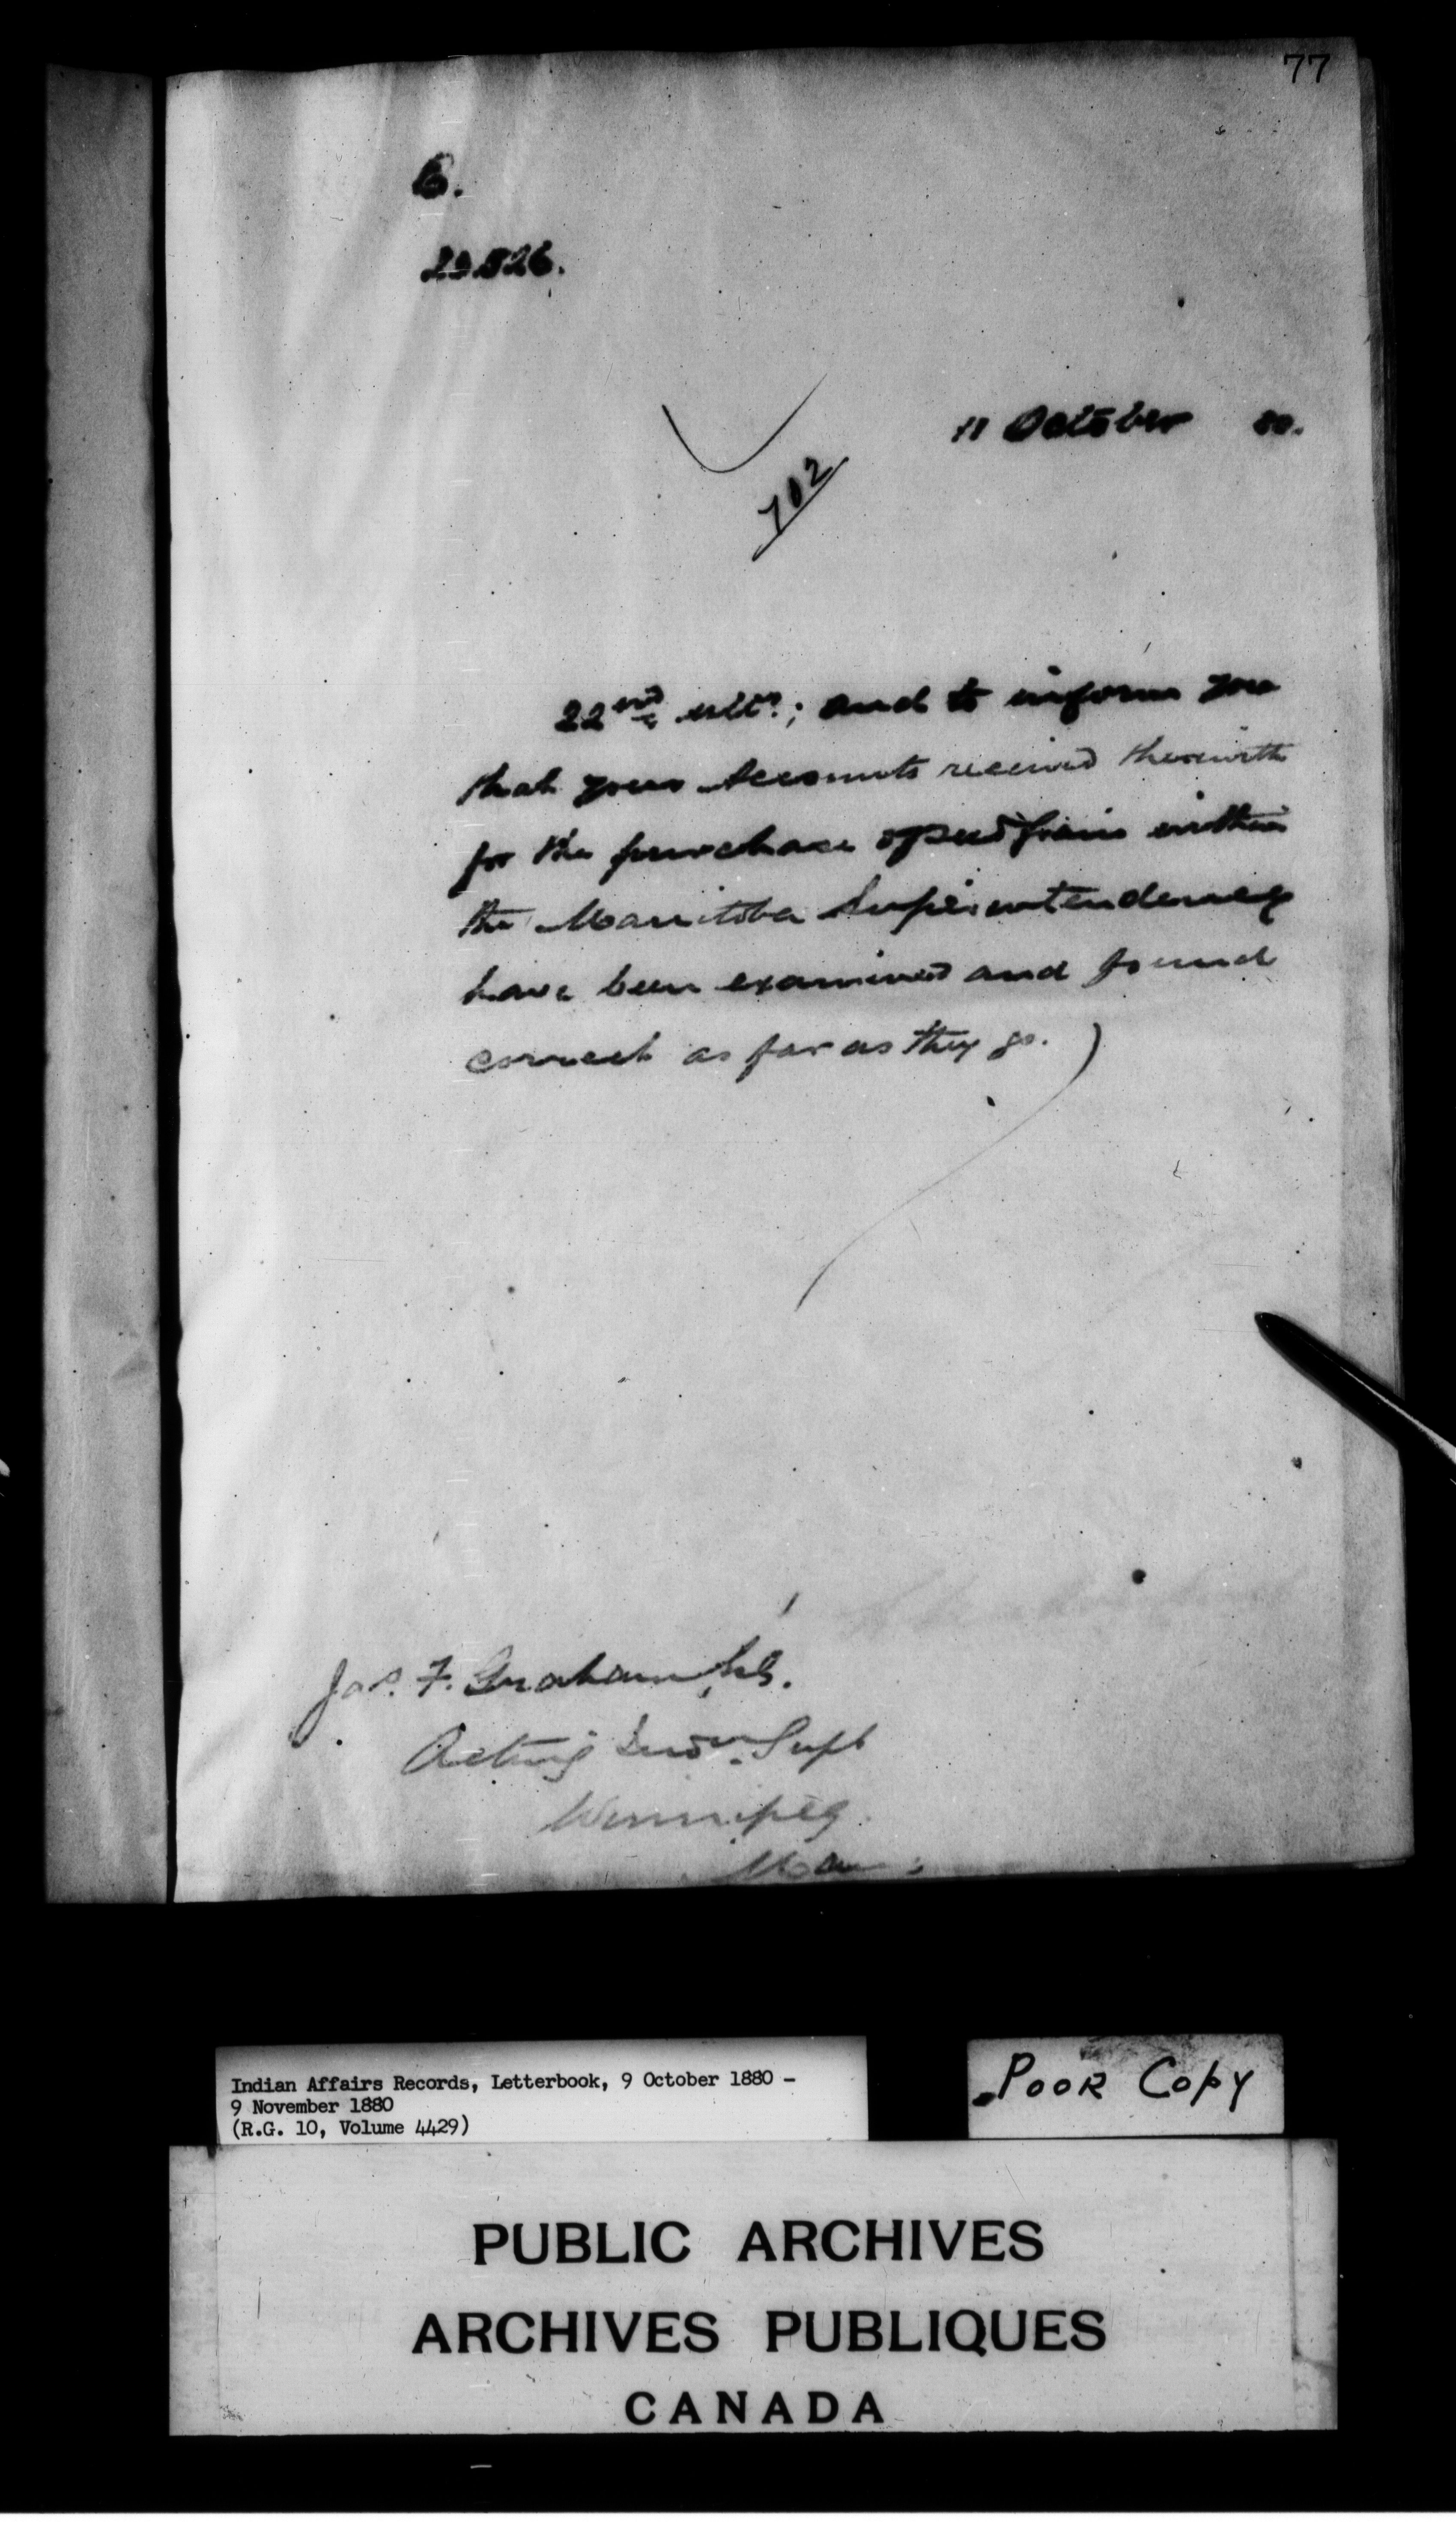 77
6.
11 October 80.
702
22nd ulto; and to inform you
that your Accounts received therewith
for the purchase of seed grain within
the Manitoba Superintendency
have been examined and found
correct as far as they go.
Jas. F. Graham,
Acting Indn. Supt
Winnipeg.
Man:
Indian Affairs Records, Letterbook, 9 October 1880 -
9 November 1880
(R.G. 10, Volume 4429)
POOR COPY
PUBLIC ARCHIVES
ARCHIVES PUBLIQUES
CANADA